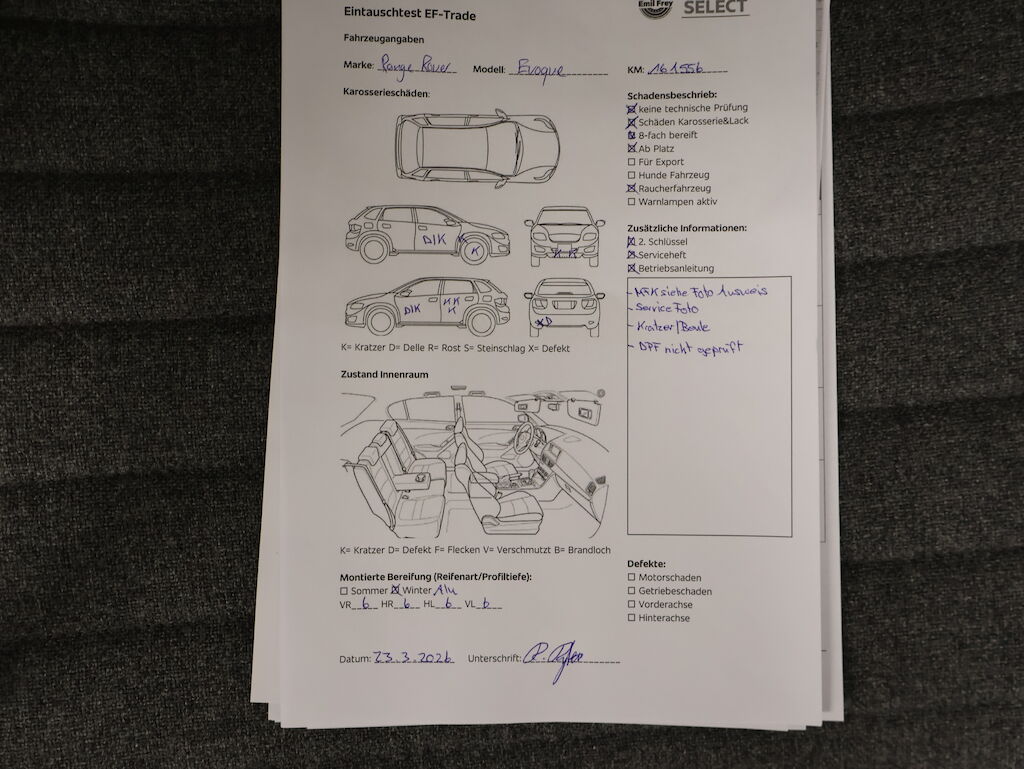 Eintauschtest EF-Trade
Emil Frey
SELECT
Fahrzeugangaben
Marke: Range Rover Modell: Evoque KM: 161556
Karosserieschäden:
D/K
K
K K
D/K
K K
K
X D
K= Kratzer D= Delle R= Rost S= Steinschlag X= Defekt
Schadensbeschrieb:
keine technische Prüfung
Schäden Karosserie&Lack
8-fach bereift
Ab Platz
Für Export
Hunde Fahrzeug
Raucherfahrzeug
Warnlampen aktiv
Zusätzliche Informationen:
2. Schlüssel
Serviceheft
Betriebsanleitung
- MFK siehe Foto Ausweis
- Service Foto
- Kratzer/Beule
- DPF nicht geprüft
Zustand Innenraum
K= Kratzer D= Defekt F= Flecken V= Verschmutzt B= Brandloch
Montierte Bereifung (Reifenart/Profiltiefe):
Sommer Winter Alu
VR 6 HR 6 HL 6 VL 6
Defekte:
Motorschaden
Getriebeschaden
Vorderachse
Hinterachse
Datum: 23.3.2026 Unterschrift: